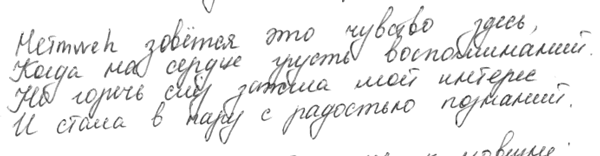 Heimweh зовётся это чувство здесь,
Когда на сердце грусть воспоминаний.
Но горечь эту зажгла мой интерес
И стала в пару с радостью познаний.